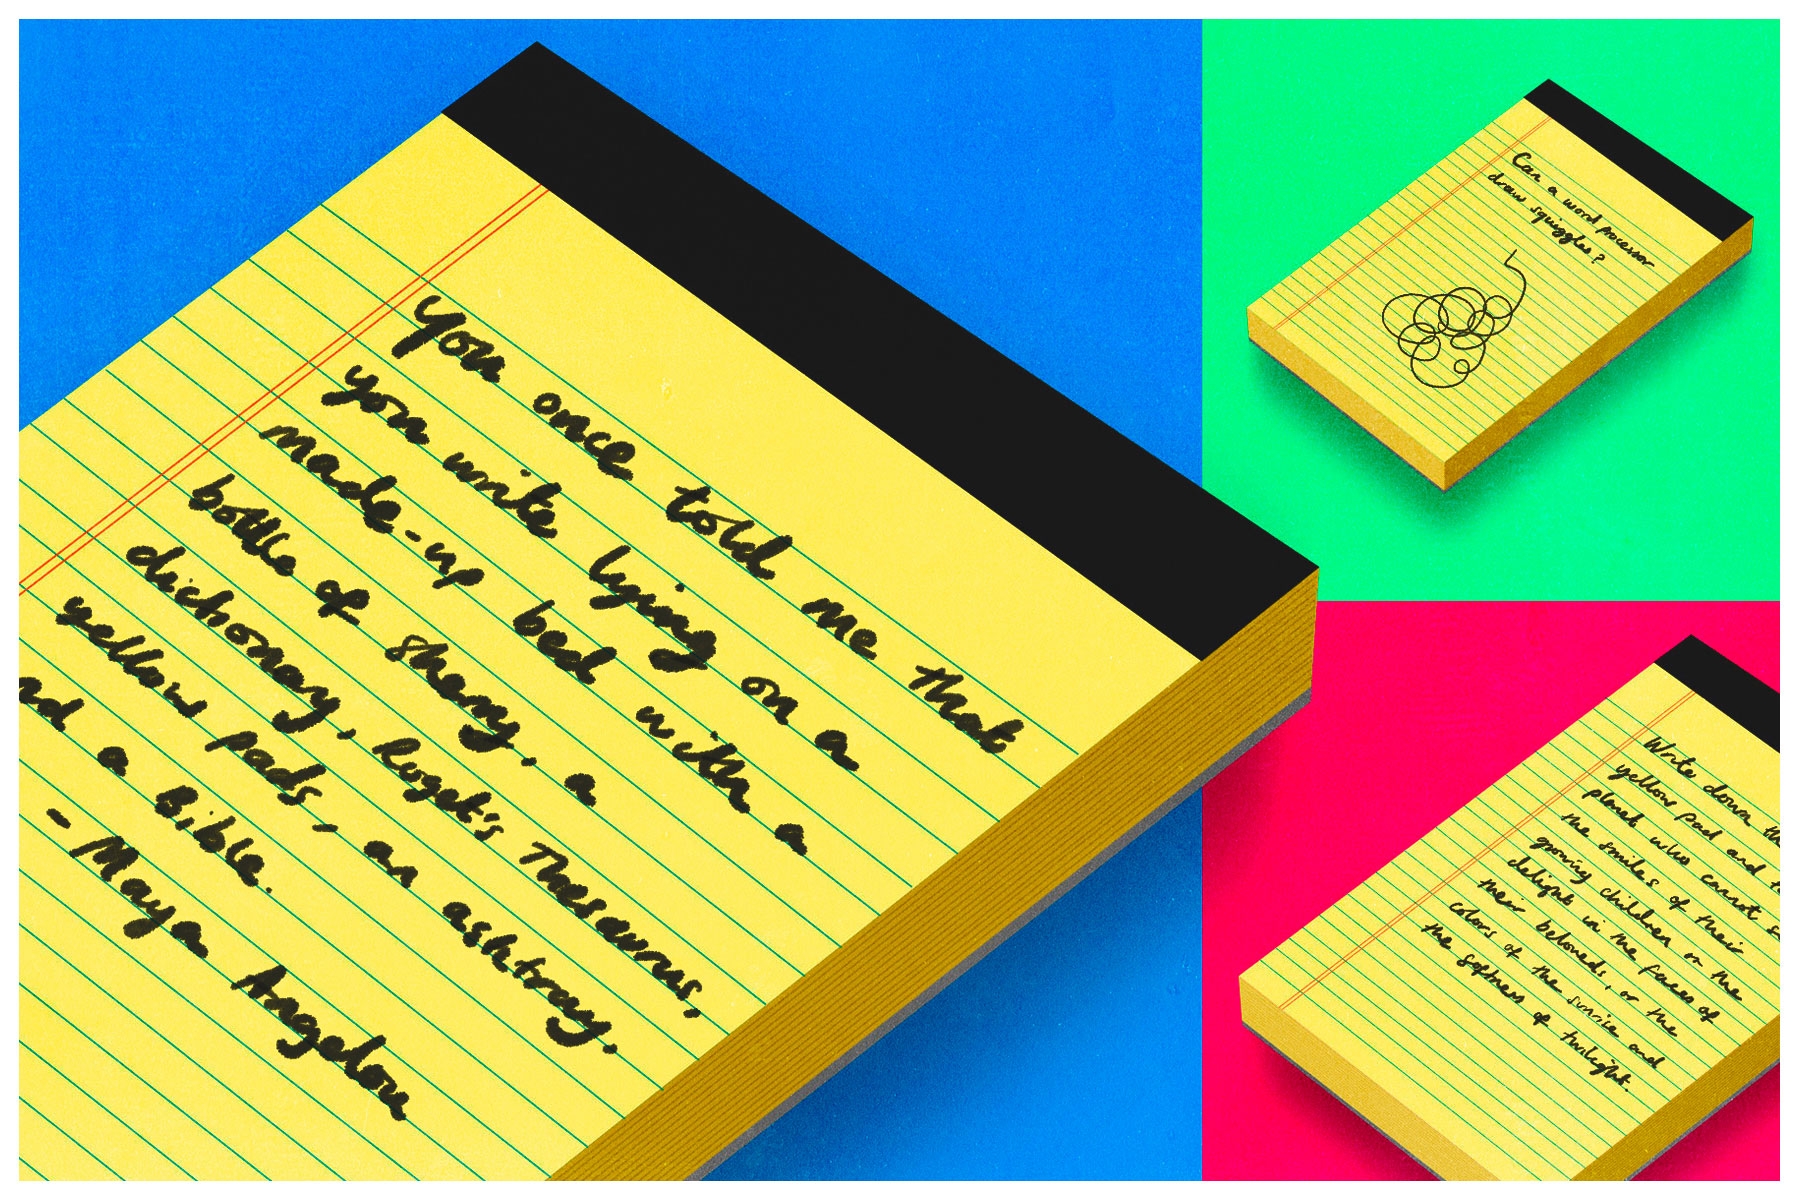 You once told me that
you write lying on a
made-up bed with a
bottle of sherry, a
dictionary, Roget's Thesaurus,
yellow pads, an ashtray,
nd a Bible.
- Maya Angelou
Can a word processor
draw squiggles?
Write down th
yellow pad and t
planet who cannot s
the smiles of their
growing children or the
delight in the faces of
their beloveds, or the
colors of the sunrise and
the softness of twilight.